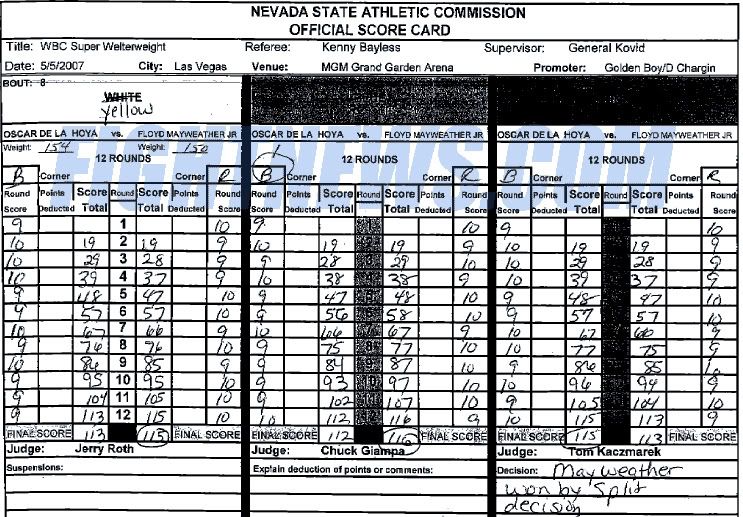 NEVADA STATE ATHLETIC COMMISSION
OFFICIAL SCORE CARD
Title: WBC Super Welterweight Referee: Kenny Bayless Supervisor: General Kovid
Date: 5/5/2007 City: Las Vegas Venue: MGM Grand Garden Arena Promoter: Golden Boy/D Chargin
BOUT: 8
WHITE
yellow
OSCAR DE LA HOYA vs. FLOYD MAYWEATHER JR OSCAR DE LA HOYA vs. FLOYD MAYWEATHER JR OSCAR DE LA HOYA vs. FLOYD MAYWEATHER JR
Weight: 154 Weight: 150
FIGHTNEWS.COM
12 ROUNDS 12 ROUNDS 12 ROUNDS
B Corner Corner R B Corner Corner R B Corner Corner R
Round Score Points Deducted Score Total Round Score Total Points Deducted Round Score Round Score Points Deducted Score Total Round Score Total Points Deducted Round Score Round Score Points Deducted Score Total Round Score Total Points Deducted Round Score
9 1 10 9 1 10 9 10
10 19 2 19 9 10 19 2 19 9 10 19 19 9
10 29 3 28 9 9 28 3 29 10 10 29 28 9
10 39 4 37 9 10 38 4 38 9 10 39 37 9
9 48 5 47 10 9 47 5 48 10 9 48 47 10
9 57 6 57 10 9 56 6 58 10 9 57 57 10
10 67 7 66 9 10 66 7 67 9 10 67 66 9
9 76 8 76 10 9 75 8 77 10 10 77 75 9
10 86 9 85 9 9 84 9 87 10 9 86 85 10
9 95 10 95 10 9 93 10 97 10 10 96 94 9
9 104 11 105 10 9 102 11 107 10 9 105 104 10
9 113 12 115 10 10 112 12 116 9 10 115 113 9
FINAL SCORE 113 115 FINAL SCORE FINAL SCORE 112 116 FINAL SCORE FINAL SCORE 115 113 FINAL SCORE
Judge: Jerry Roth Judge: Chuck Giampa Judge: Tom Kaczmarek
Suspensions: Explain deduction of points or comments: Decision: Mayweather
won by split
decision